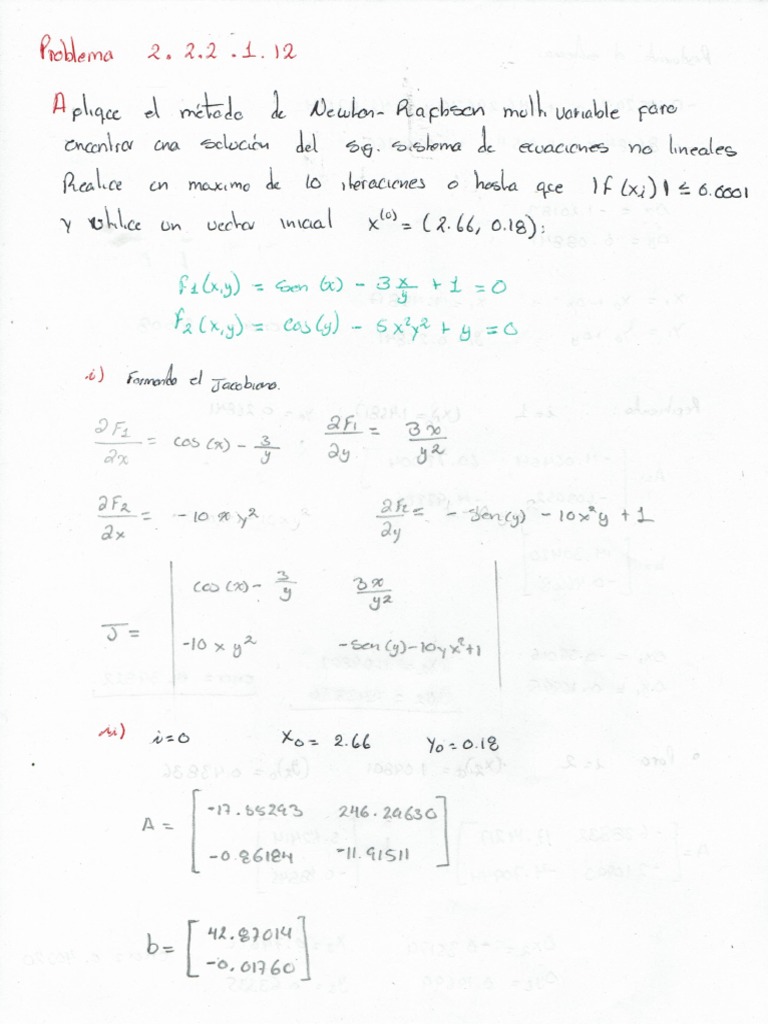 Problema 2.2.2.1.12
Aplique el método de Newton-Raphson multivariable para
encontrar una solución del sg. sistema de ecuaciones no lineales
Realice en maximo de 10 iteraciones o hasta que |f(xi)| ≤ 0.0001
y utilice un vector inicial x⁽⁰⁾ = (2.66, 0.18):
f1(x,y) = sen(x) - 3 x/y + 1 = 0
f2(x,y) = cos(y) - 5x²y² + y = 0
i) Formando el Jacobiano.
∂F1/∂x = cos(x) - 3/y   ∂F1/∂y = 3x/y²
∂F2/∂x = -10 x y²   ∂F2/∂y = - sen(y) - 10x²y + 1
J = | cos(x) - 3/y   3x/y² |
| -10 x y²   -sen(y)-10yx²+1 |
ii) i=0   X0 = 2.66   Y0 = 0.18
A = [ -17.55293   246.29630 ]
[ -0.86184   -11.91511 ]
b = [ 42.87014 ]
[ -0.01760 ]